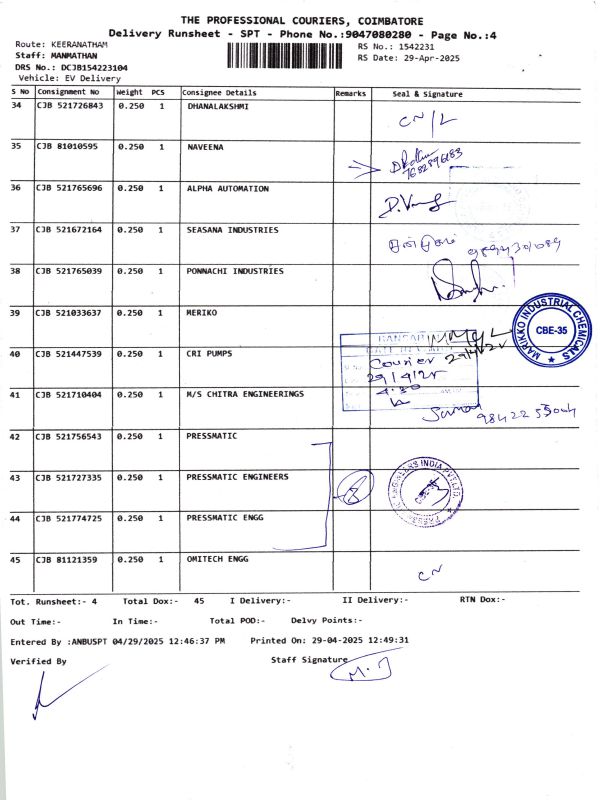 THE PROFESSIONAL COURIERS, COIMBATORE
Delivery Runsheet - SPT - Phone No.:9047080280 - Page No.:4
Route: KEERANATHAM
RS No.: 1542231
Staff: MANMATHAN
RS Date: 29-Apr-2025
DRS No.: DCJB154223104
Vehicle: EV Delivery
S No Consignment No Weight PCS Consignee Details Remarks Seal & Signature
34 CJB 521726843 0.250 1 DHANALAKSHMI
CN/L
35 CJB 81010595 0.250 1 NAVEENA
7682896183
36 CJB 521765696 0.250 1 ALPHA AUTOMATION
37 CJB 521672164 0.250 1 SEASANA INDUSTRIES
38 CJB 521765039 0.250 1 PONNACHI INDUSTRIES
39 CJB 521033637 0.250 1 MERIKO
MARIKKO INDUSTRIAL CHEMICALS
CBE-35
40 CJB 521447539 0.250 1 CRI PUMPS
Courier
29/4/25
4.30
41 CJB 521710404 0.250 1 M/S CHITRA ENGINEERINGS
42 CJB 521756543 0.250 1 PRESSMATIC
43 CJB 521727335 0.250 1 PRESSMATIC ENGINEERS
44 CJB 521774725 0.250 1 PRESSMATIC ENGG
45 CJB 81121359 0.250 1 OMITECH ENGG
CN
Tot. Runsheet:- 4 Total Dox:- 45 I Delivery:- II Delivery:- RTN Dox:-
Out Time:- In Time:- Total POD:- Delvy Points:-
Entered By :ANBUSPT 04/29/2025 12:46:37 PM Printed On: 29-04-2025 12:49:31
Verified By Staff Signature
M.J